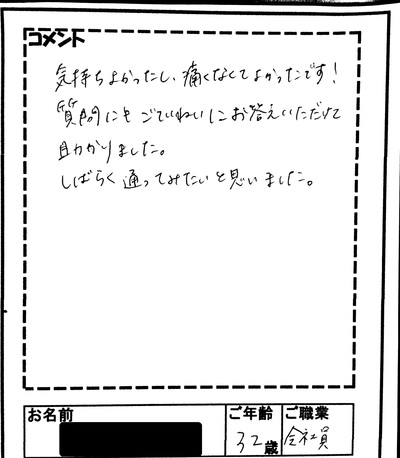 コメント
気持ちよかったし、痛くなくてよかったです！
質問にもごていねいにお答えいただけて
助かりました。
しばらく通ってみたいと思いました。
お名前
ご年齢
ご職業
32歳
会社員